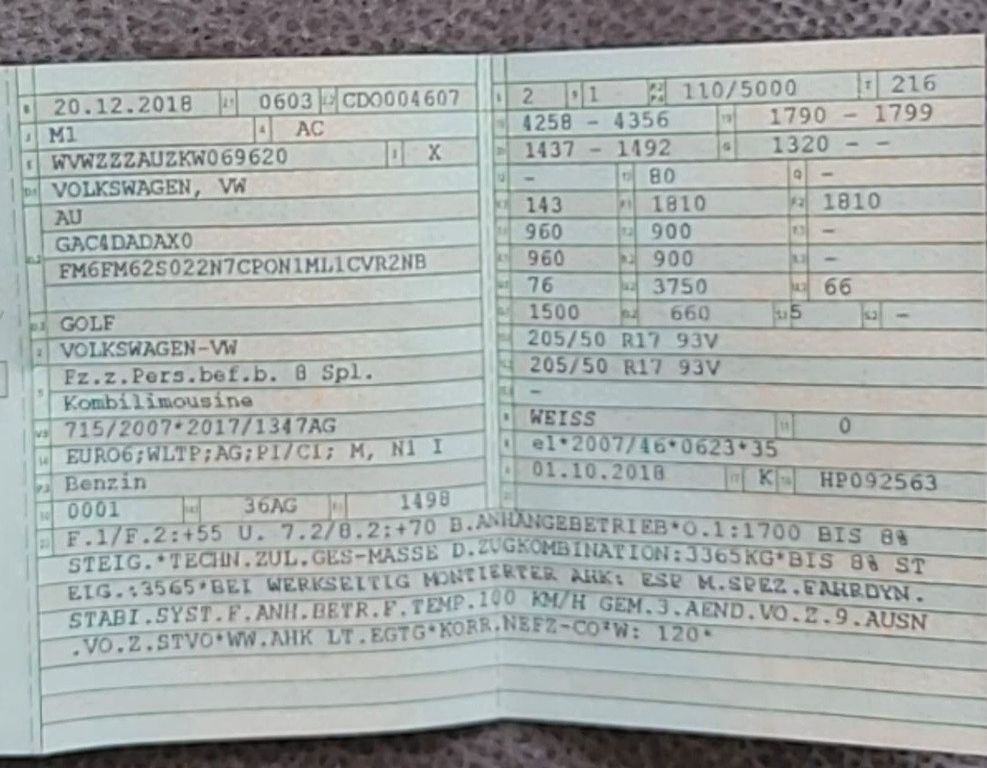 20.12.2018 0603 CDO004607
M1 AC
WVWZZZAUZKW069620 X
VOLKSWAGEN, VW
AU
GAC4DADAX0
FM6FM62S022N7CPON1ML1CVR2NB
GOLF
VOLKSWAGEN-VW
Fz.z.Pers.bef.b. 8 Spl.
Kombilimousine
715/2007*2017/1347AG
EURO6;WLTP;AG;PI/CI; M, N1 I
Benzin
0001 36AG 1498
2 1 110/5000 216
4258 - 4356 1790 - 1799
1437 - 1492 1320 - -
- 80 -
143 1810 1810
960 900 -
960 900 -
76 3750 66
1500 660 5 -
205/50 R17 93V
205/50 R17 93V
-
WEISS 0
e1*2007/46*0623*35
01.10.2018 K HP092563
F.1/F.2:+55 U. 7.2/8.2:+70 B.ANHÄNGEBETRIEB*O.1:1700 BIS 8%
STEIG.*TECHN.ZUL.GES-MASSE D.ZUGKOMBINATION:3365KG*BIS 8% ST
EIG.:3565*BEI WERKSEITIG MONTIERTER AHK: ESP M.SPEZ.FAHRDYN.
STABI.SYST.F.ANH.BETR.F.TEMP.100 KM/H GEM.3.AEND.VO.Z.9.AUSN
.VO.Z.STVO*WW.AHK LT.EGTG*KORR.NEFZ-CO*W: 120*